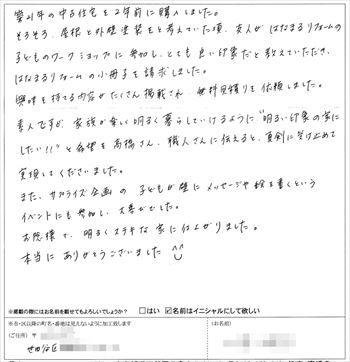 築21年の中古住宅を2年前に購入しました。
そろそろ、屋根と外壁塗装をと考えていた頃、友人がはなまるリフォームの
子どものワークショップに参加し、とても良い印象だと教えていただき、
はなまるリフォームの小冊子を請求しました。
興味を持てる内容がたくさん掲載され、無料見積りを依頼しました。
素人ですが、家族が楽しく明るく暮らしていけるように"明るい印象の家に
したい!!"と希望を高橋さん、職人さんに伝えると、真剣に受け止めて
実現してくださいました。
また、サプライズ企画の子どもが壁にメッセージや絵を書くという
イベントにも参加し、大喜びでした。
お陰様で、明るくステキな家に仕上がりました。
本当にありがとうございました ^^
※掲載の際にはお名前を載せてもよろしいでしょうか? □はい ☑名前はイニシャルにして欲しい
※市・区以降の町名・番地は見えないように加工致します
(ご住所) 〒 (お名前)
世田谷区